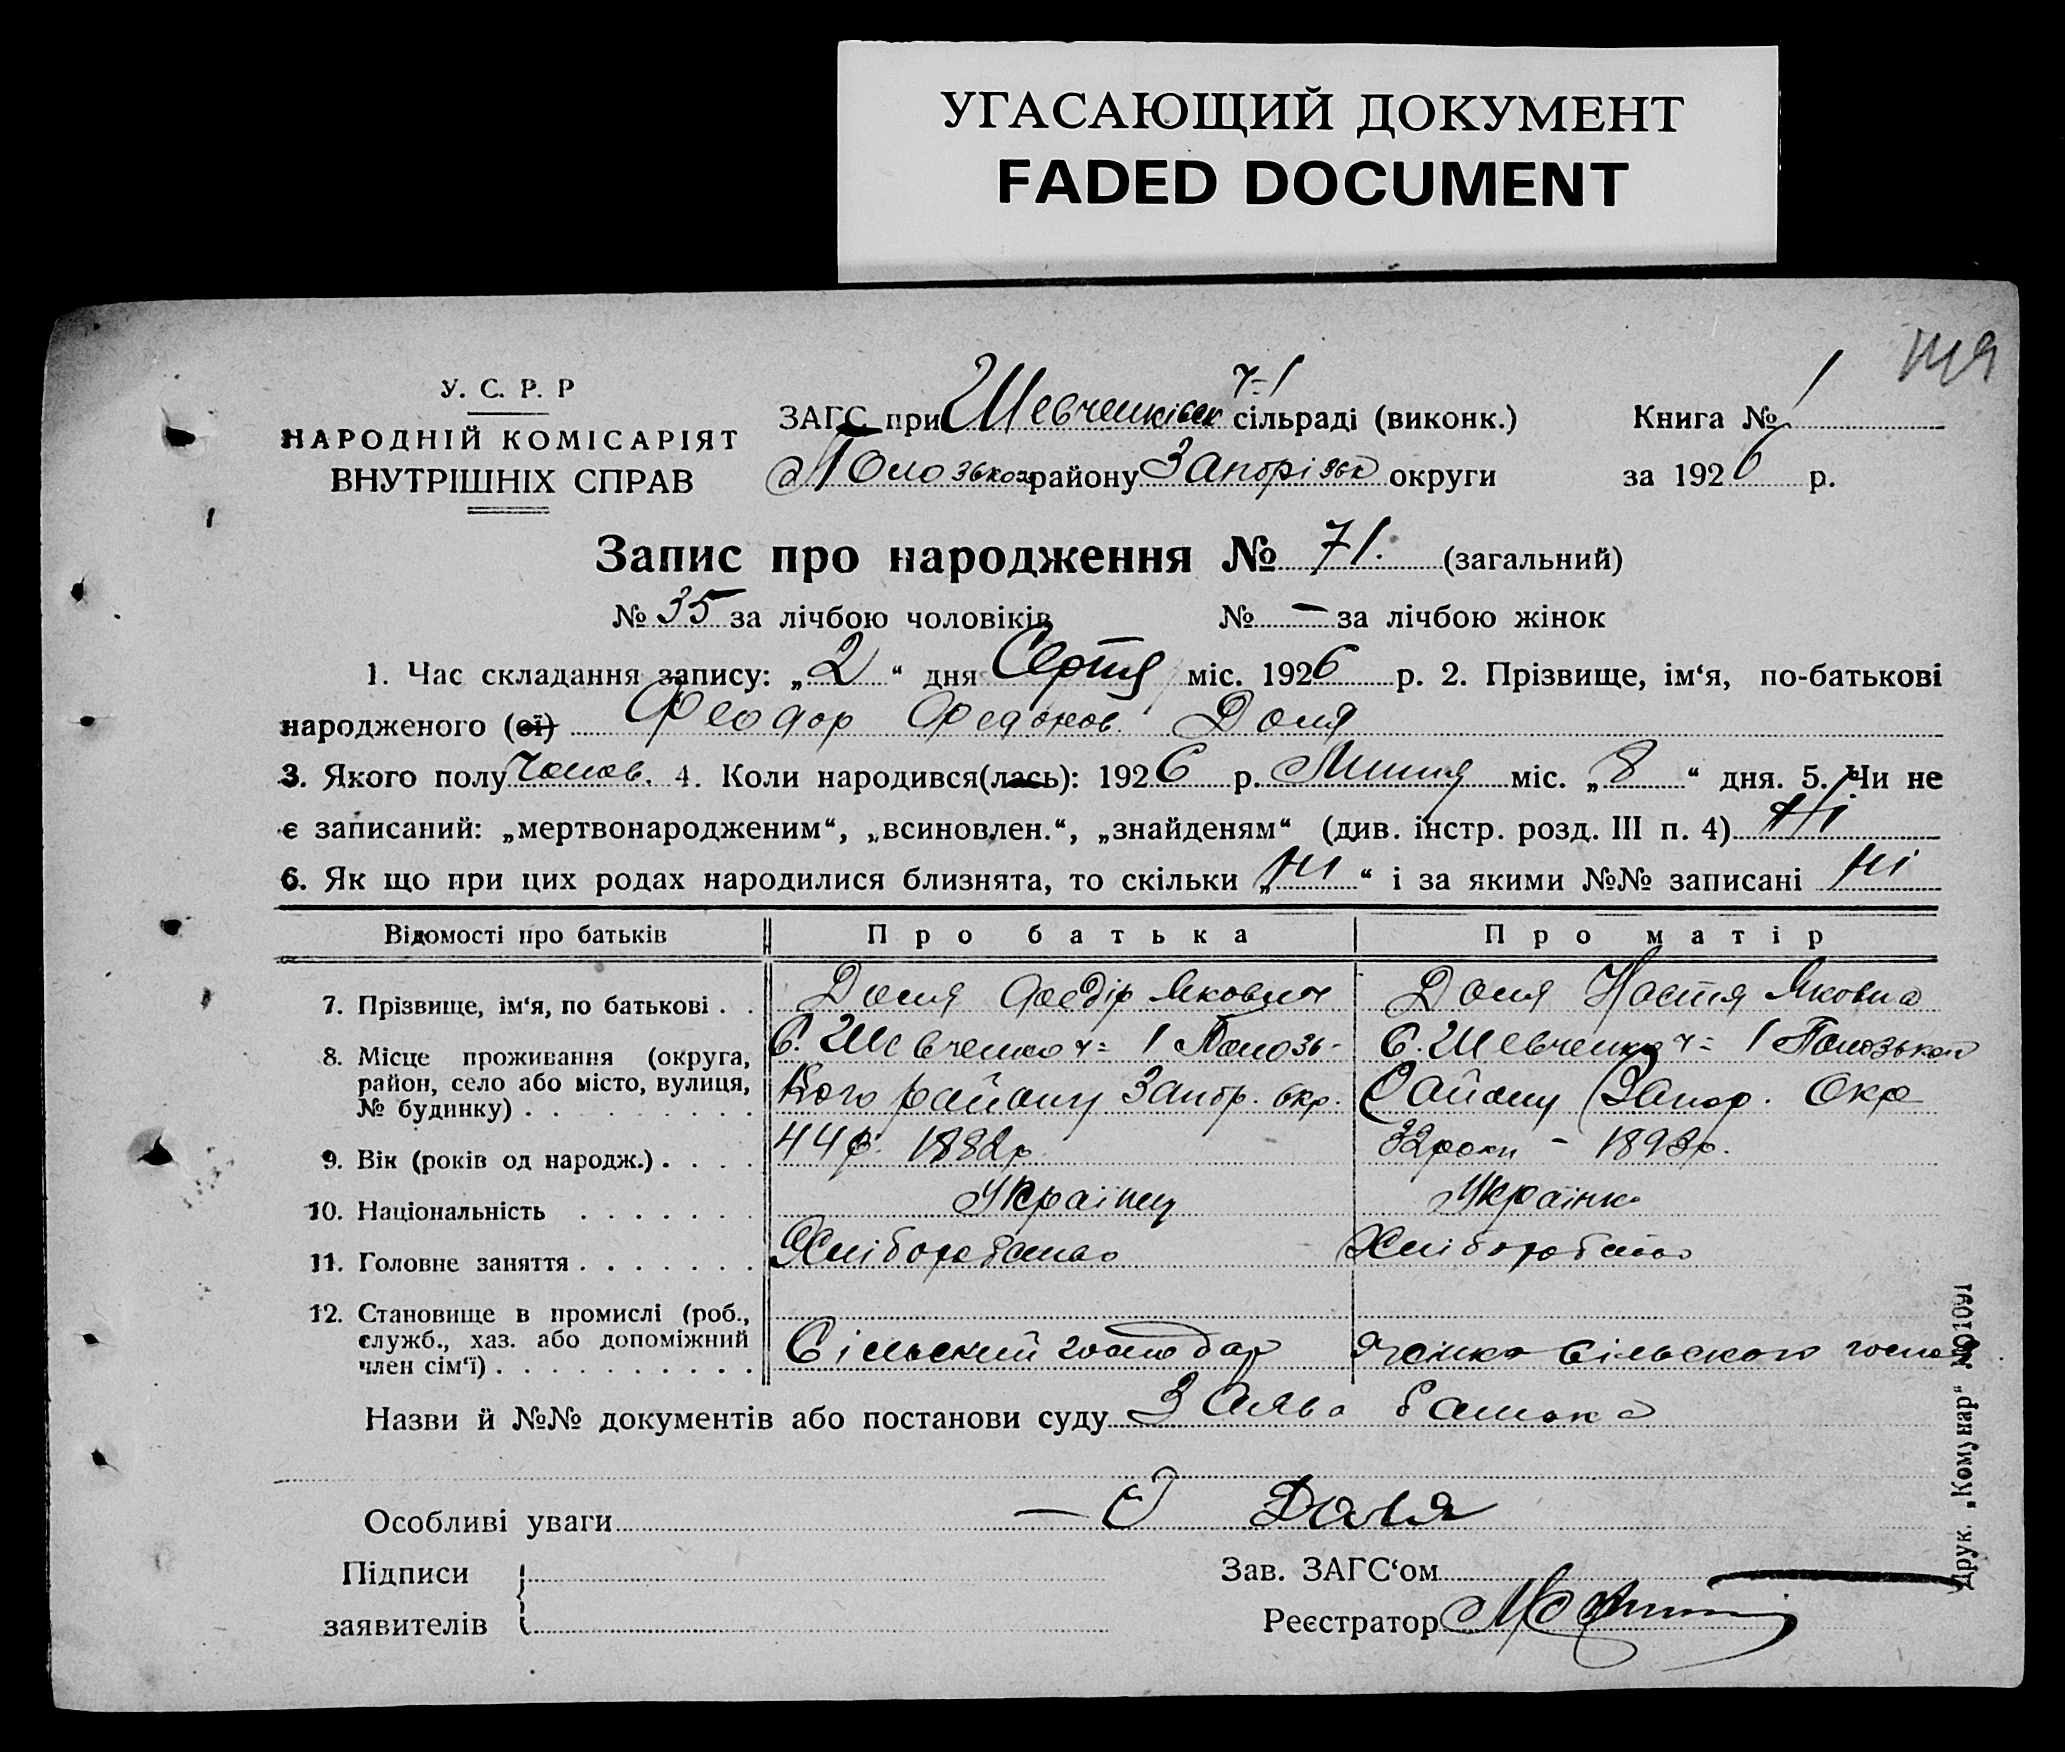 УГАСАЮЩИЙ ДОКУМЕНТ
FADED DOCUMENT
У. С. Р. Р
НАРОДНІЙ КОМІСАРІЯТ
ВНУТРІШНІХ СПРАВ
ЗАГС при Шевченківск ч-1 сільраді (виконк.)
Полозького району Запорізьк округи
Книга № 1
за 1926 р.
Запис про народження № 71. (загальний)
№ 35 за лічбою чоловіків № — за лічбою жінок
1. Час складання запису: „2“ дня Серпня міс. 1926 р. 2. Прізвище, ім‘я, по-батькові
народженого (ої) Феодор Федоров. Доля
3. Якого полу Чолов. 4. Коли народився(лась): 1926 р. Липня міс. „8“ дня. 5. Чи не
є записаний: „мертвонародженим“, „всиновлен.“, „знайденям“ (див. інстр. розд. III п. 4) Ні
6. Як що при цих родах народилися близнята, то скільки „ні“ і за якими №№ записані ні
Відомості про батьків Про батька Про матір
7. Прізвище, ім‘я, по батькові . . Доля Федір Якович Доля Настя Яковна
8. Місце проживання (округа, район, село або місто, вулиця, № будинку) . . . . . . . . .
С. Шевченко ч= 1 Полозь-
кого району Запор. окр.
С. Шевченко ч= 1 Полозького
Району Запор. Окр
9. Вік (років од народж.) . . . . 44 р. 1882 р. 32 роки - 1893 р.
10. Національність . . . . . . . Українец Українка
11. Головне заняття . . . . . . . Хліборобство Хліборобство
12. Становище в промислі (роб., служб., хаз. або допоміжний член сім‘ї) . . . . . . . . . .
Сільский господар
Жінка сільского господ.
Назви й №№ документів або постанови суду Заява батька
Особливі уваги — Доля
Підписи
заявителів
Зав. ЗАГС‘ом
Реєстратор
Друк. „Комунар“ №01091